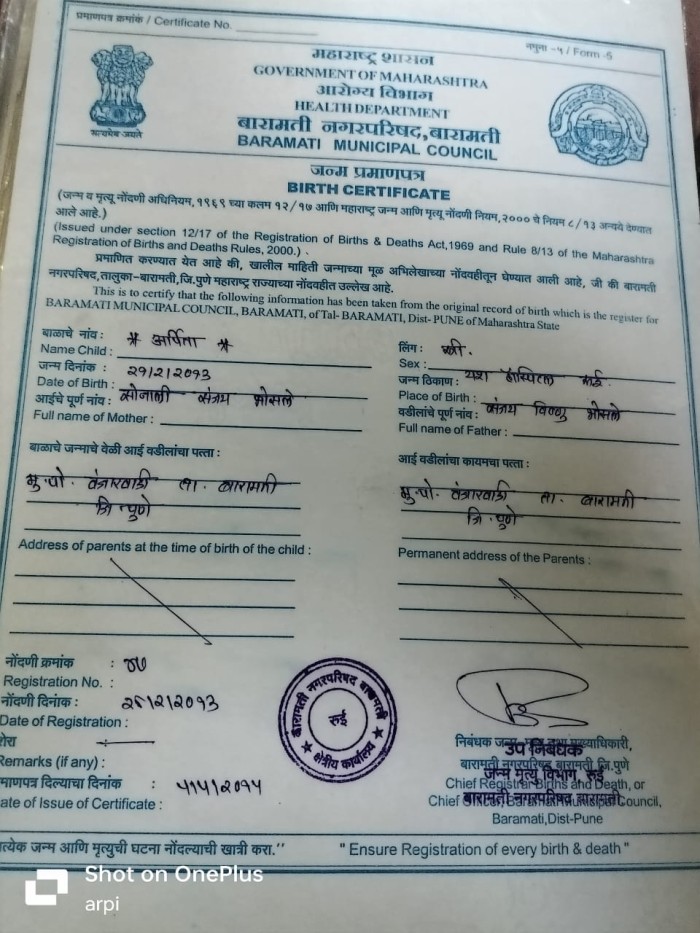 प्रमाणपत्र क्रमांक / Certificate No.
नमुना -५ / Form -5
महाराष्ट्र शासन
GOVERNMENT OF MAHARASHTRA
आरोग्य विभाग
HEALTH DEPARTMENT
बारामती नगरपरिषद,बारामती
BARAMATI MUNICIPAL COUNCIL
सत्यमेव जयते
जन्म प्रमाणपत्र
BIRTH CERTIFICATE
(जन्म व मृत्यू नोंदणी अधिनियम, १९६९ च्या कलम १२/१७ आणि महाराष्ट्र जन्म आणि मृत्यू नोंदणी नियम,२००० चे नियम ८/१३ अन्वये देण्यात
आले आहे.)
(Issued under section 12/17 of the Registration of Births & Deaths Act,1969 and Rule 8/13 of the Maharashtra
Registration of Births and Deaths Rules, 2000.)
प्रमाणित करण्यात येत आहे की, खालील माहिती जन्माच्या मूळ अभिलेखाच्या नोंदवहीतून घेण्यात आली आहे, जी की बारामती
नगरपरिषद,तालुका-बारामती,जि.पुणे महाराष्ट्र राज्याच्या नोंदवहीत उल्लेख आहे.
This is to certify that the following information has been taken from the original record of birth which is the register for
BARAMATI MUNICIPAL COUNCIL, BARAMATI, of Tal- BARAMATI, Dist- PUNE of Maharashtra State
बाळाचे नांव : * अर्पिता *
Name Child :
जन्म दिनांक : २१/२/२०१३
Date of Birth :
आईचे पूर्ण नांव : सोनाली संजय भोसले
Full name of Mother :
लिंग : स्त्री.
Sex :
जन्म ठिकाण : यश हॉस्पिटल रुई.
Place of Birth :
वडीलांचे पूर्ण नांव : संजय विष्णु भोसले
Full name of Father :
बाळाचे जन्माचे वेळी आई वडीलांचा पत्ता :
मु.पो. वंजारवाडी ता. बारामती
जि.पुणे
Address of parents at the time of birth of the child :
आई वडीलांचा कायमचा पत्ता :
मु.पो. वंजारवाडी ता. बारामती
जि.पुणे
Permanent address of the Parents :
नोंदणी क्रमांक :
Registration No. :
नोंदणी दिनांक :
Date of Registration :
शेरा
Remarks (if any) :
माणपत्र दिल्याचा दिनांक : ५/५/२०१५
ate of Issue of Certificate :
बारामती नगरपरिषद बारामती
रुई
क्षेत्रीय कार्यालय
निबंधक
उप निबंधक
बारामती नगरपरिषद बारामती जि.पुणे
जन्म मृत्यू विभाग रुई
Chief Registrar Births and Death, or
बारामती नगरपरिषद बारामती
Baramati,Dist-Pune
त्येक जन्म आणि मृत्युची घटना नोंदल्याची खात्री करा.''
" Ensure Registration of every birth & death "
Shot on OnePlus
arpi